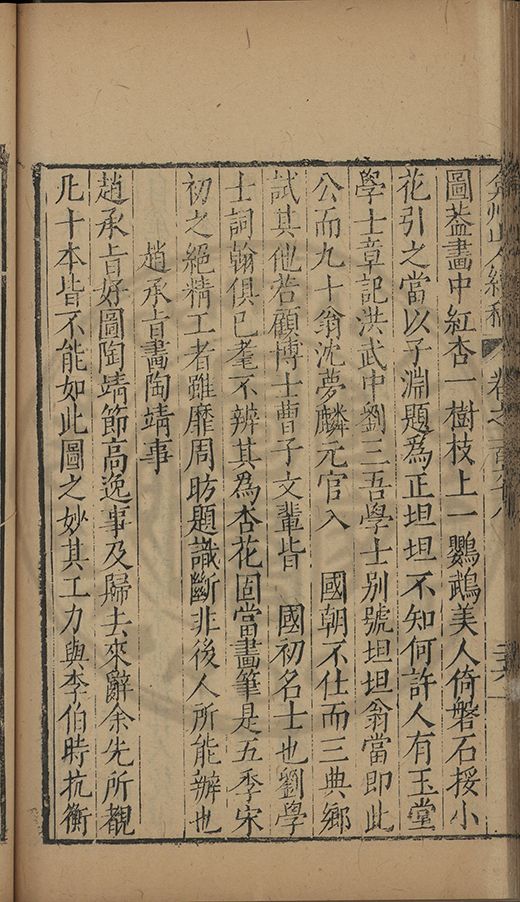 弇州山人續稿 卷之一百六十八
圖葢畫中紅杏一樹枝上一鸚鵡美人倚磐石挼小
花引之當以子淵題為正坦坦不知何許人有玉堂
學士章記洪武中劉三吾學士別號坦坦翁當即此
公而九十翁沈夢麟元官入 國朝不仕而三典鄉
試其他若顧博士曹子文輩皆 國初名士也劉學
士詞翰俱已耄不辨其為杏花固當畫筆是五季宋
初之絕精工者雖靡周昉題識斷非後人所能辦也
趙承旨畫陶靖事
趙承旨好圖陶靖節高逸事及歸去來辭余先所觀
凡十本皆不能如此圖之妙其工力與李伯時抗衡